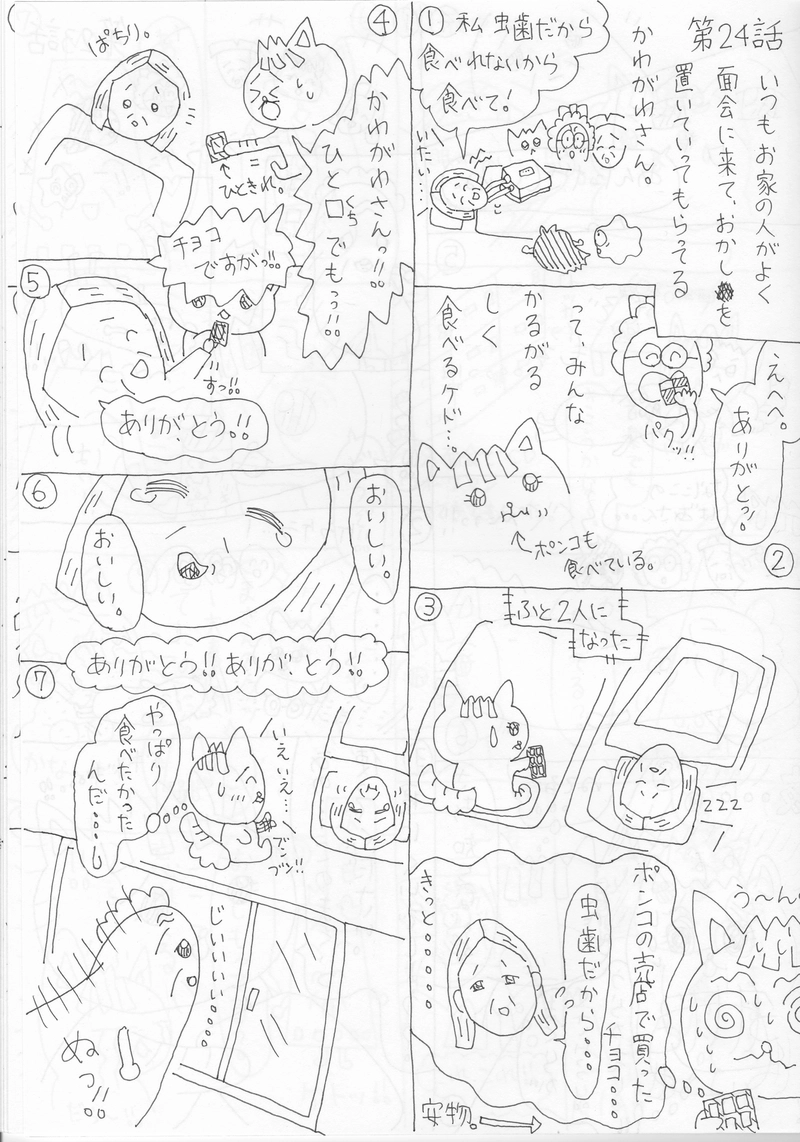 第24話
いつもお家の人がよく
面会に来て、おかしを
置いていってもらってる
かわがわさん。
①
私 虫歯だから
食べれないから
食べて!
いたい…
②
えへへ。
ありがとう。
パクッ!!
って、みんな
かるがる
しく
食べるケド…。
↑ポンコも
食べている。
③
ふと2人に
なった
zzz
う〜ん。
ポンコの売店で買った
チョコ…。
虫歯だから…。
きっと……
安物。→
④
かわがわさんっ!!
ひと口でもっ!!
くち
↑
ひときれ。
ぱちり。
⑤
チョコ
ですがっ!!
すっ!!
ありが、とう。!!
⑥
おいしい。
おいしい。
ありがとう!!ありが、とう!!
⑦
いえいえ…
ブンブン!!
やっぱり
食べたかった
んだ…。
じいいいい…
ぬっ!!